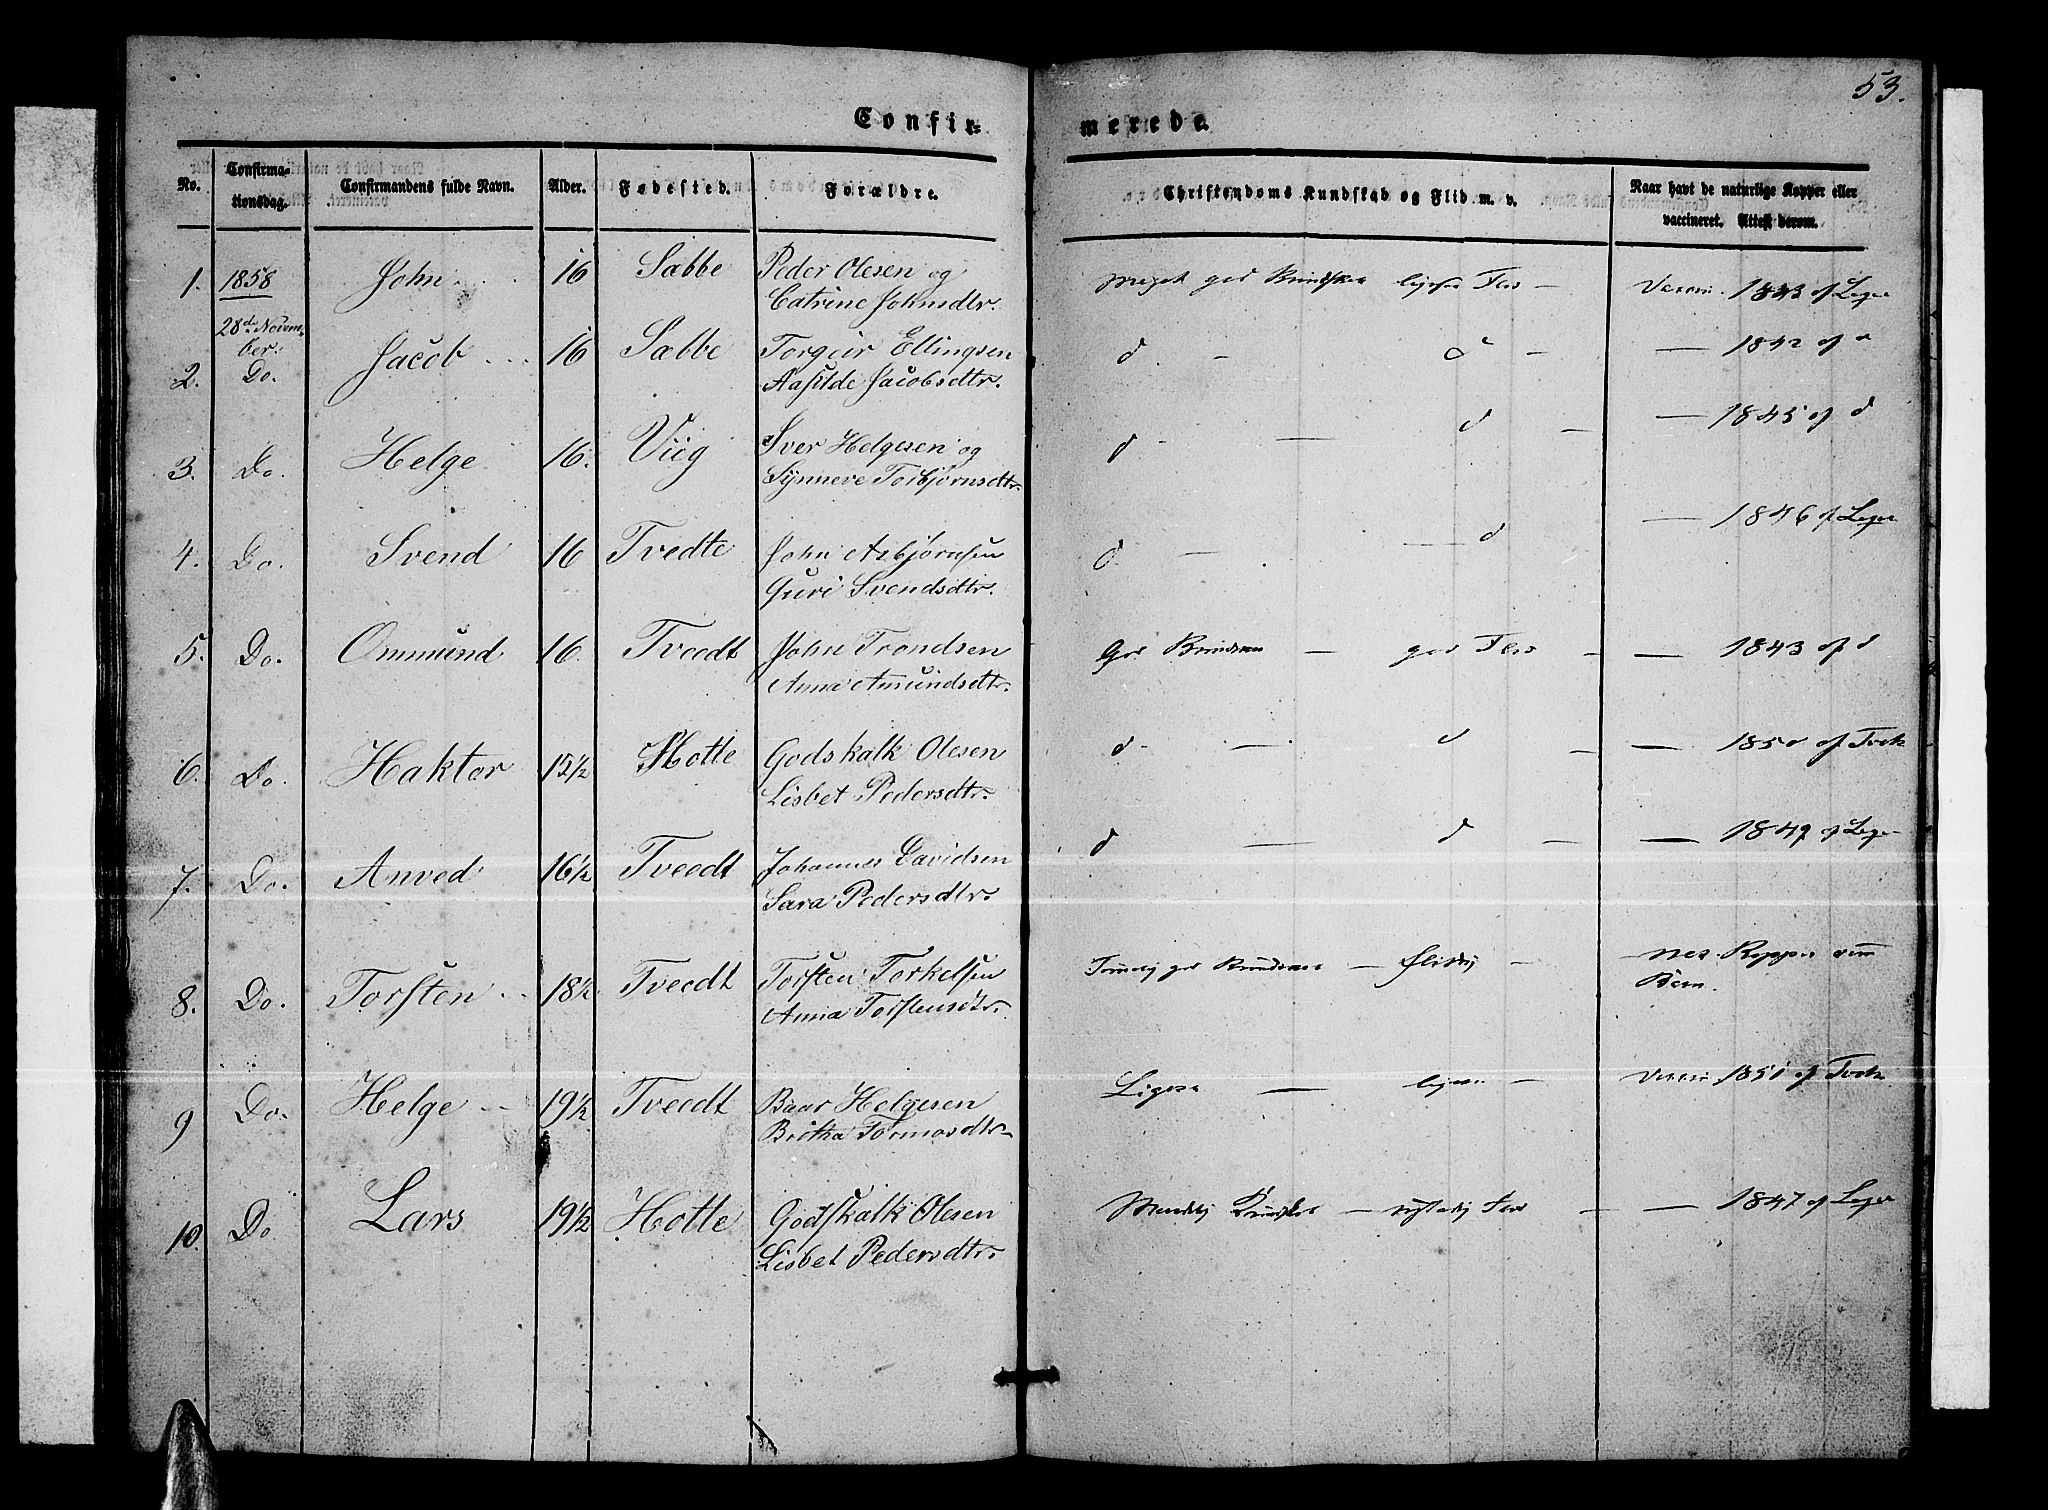 53.
Confir-
merede.
No.
Confirma-
tionsdag.
Confirmandens fulde Navn.
Alder.
Fødested.
Forældre.
Christendoms Kundskab og Flid m. v.
Naar havt de naturlige Kopper eller
vaccineret. Attest derom.
1. 1858 John 16 Sæbbe Peder Olesen og
Catrine Johnsdtr.
meget god lige Vaccin. 1843 af Læge
28de Novem-
ber.
2. Do. Jacob 16 Sæbbe Torgeir Ellingsen
Aasilde Jacobsdtr.
d - d - — 1842 af
3. Do. Helge 16. Viig Iver Helgesen og
Synneve Torbjørnsdtr.
d - — d — — 1845 af d
4. Do. Svend 16 Tvedte John Asbjørnsen
Guri Svendsdtr.
d. — — d — 1846 af Læge
5. Do. Ommund 16. Tveedt John Trondsen
Anna Amundsdtr.
God Kundskab — god Flid - — 1843 af d
6. Do. Haktor 15½ Hotle Godskalk Olesen
Lisbet Pedersdtr.
d - — d — — 1850 af
7. Do. Anved 16½ Tveedt Johannes Davidsen
Sara Pedersdtr.
d — d — — 1849 af Læge
8. Do. Torsten 18½ Tveedt Torsten Torkelsen
Anna Torstensdtr.
Temmelig god Kundskab — flittig - Kopper som
Barn.
9 Do. Helge 19½ Tveedt Baar Helgesen
Britha Tormosdtr
Ligesaa — ligesaa - Vaccin. 1851 af
10. Do Lars 19½ Hotle Godskalk Olesen
Lisbet Pedersdtr.
Maadelig Kundskab — Flid — 1847 af Læge